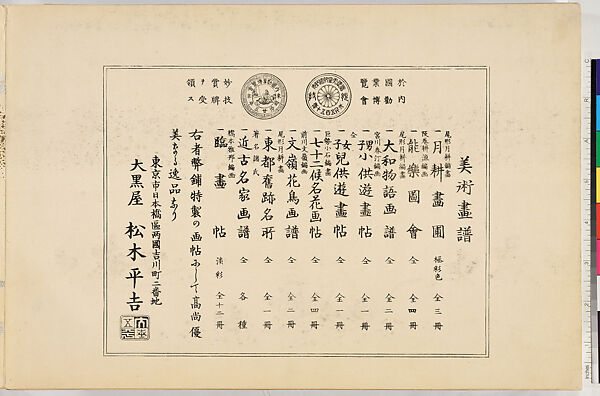 美術畫譜
尾形月耕編畫
一月耕畫圃 極彩色 全三冊
阪巻耕漁編画
一能樂圖會 全 全四冊
尾形月耕編画
一大和物語画譜 全 全二冊
宮川春汀編画
一男小供遊畫帖 全 全一冊
全
一女兒供遊畫帖 全 全一冊
巨勢小石編畫
一七十二候名花画帖 全 全四冊
前川文嶺編画
一文嶺花鳥画譜 全 全二冊
尾形月耕畫
一東都舊跡名所 全 全一冊
著名諸氏
一近古名家画譜 全 各種
橋本雅邦編画
一臨畫帖 淡彩 全十二冊
右者弊鋪特製の画帖にして高尚優
美なる逸品なり
東京市日本橋區両國吉川町二番地
大黒屋 松木平吉
於内
國勸
業博
覧會
妙技
賞牌
ヲ受
領ス